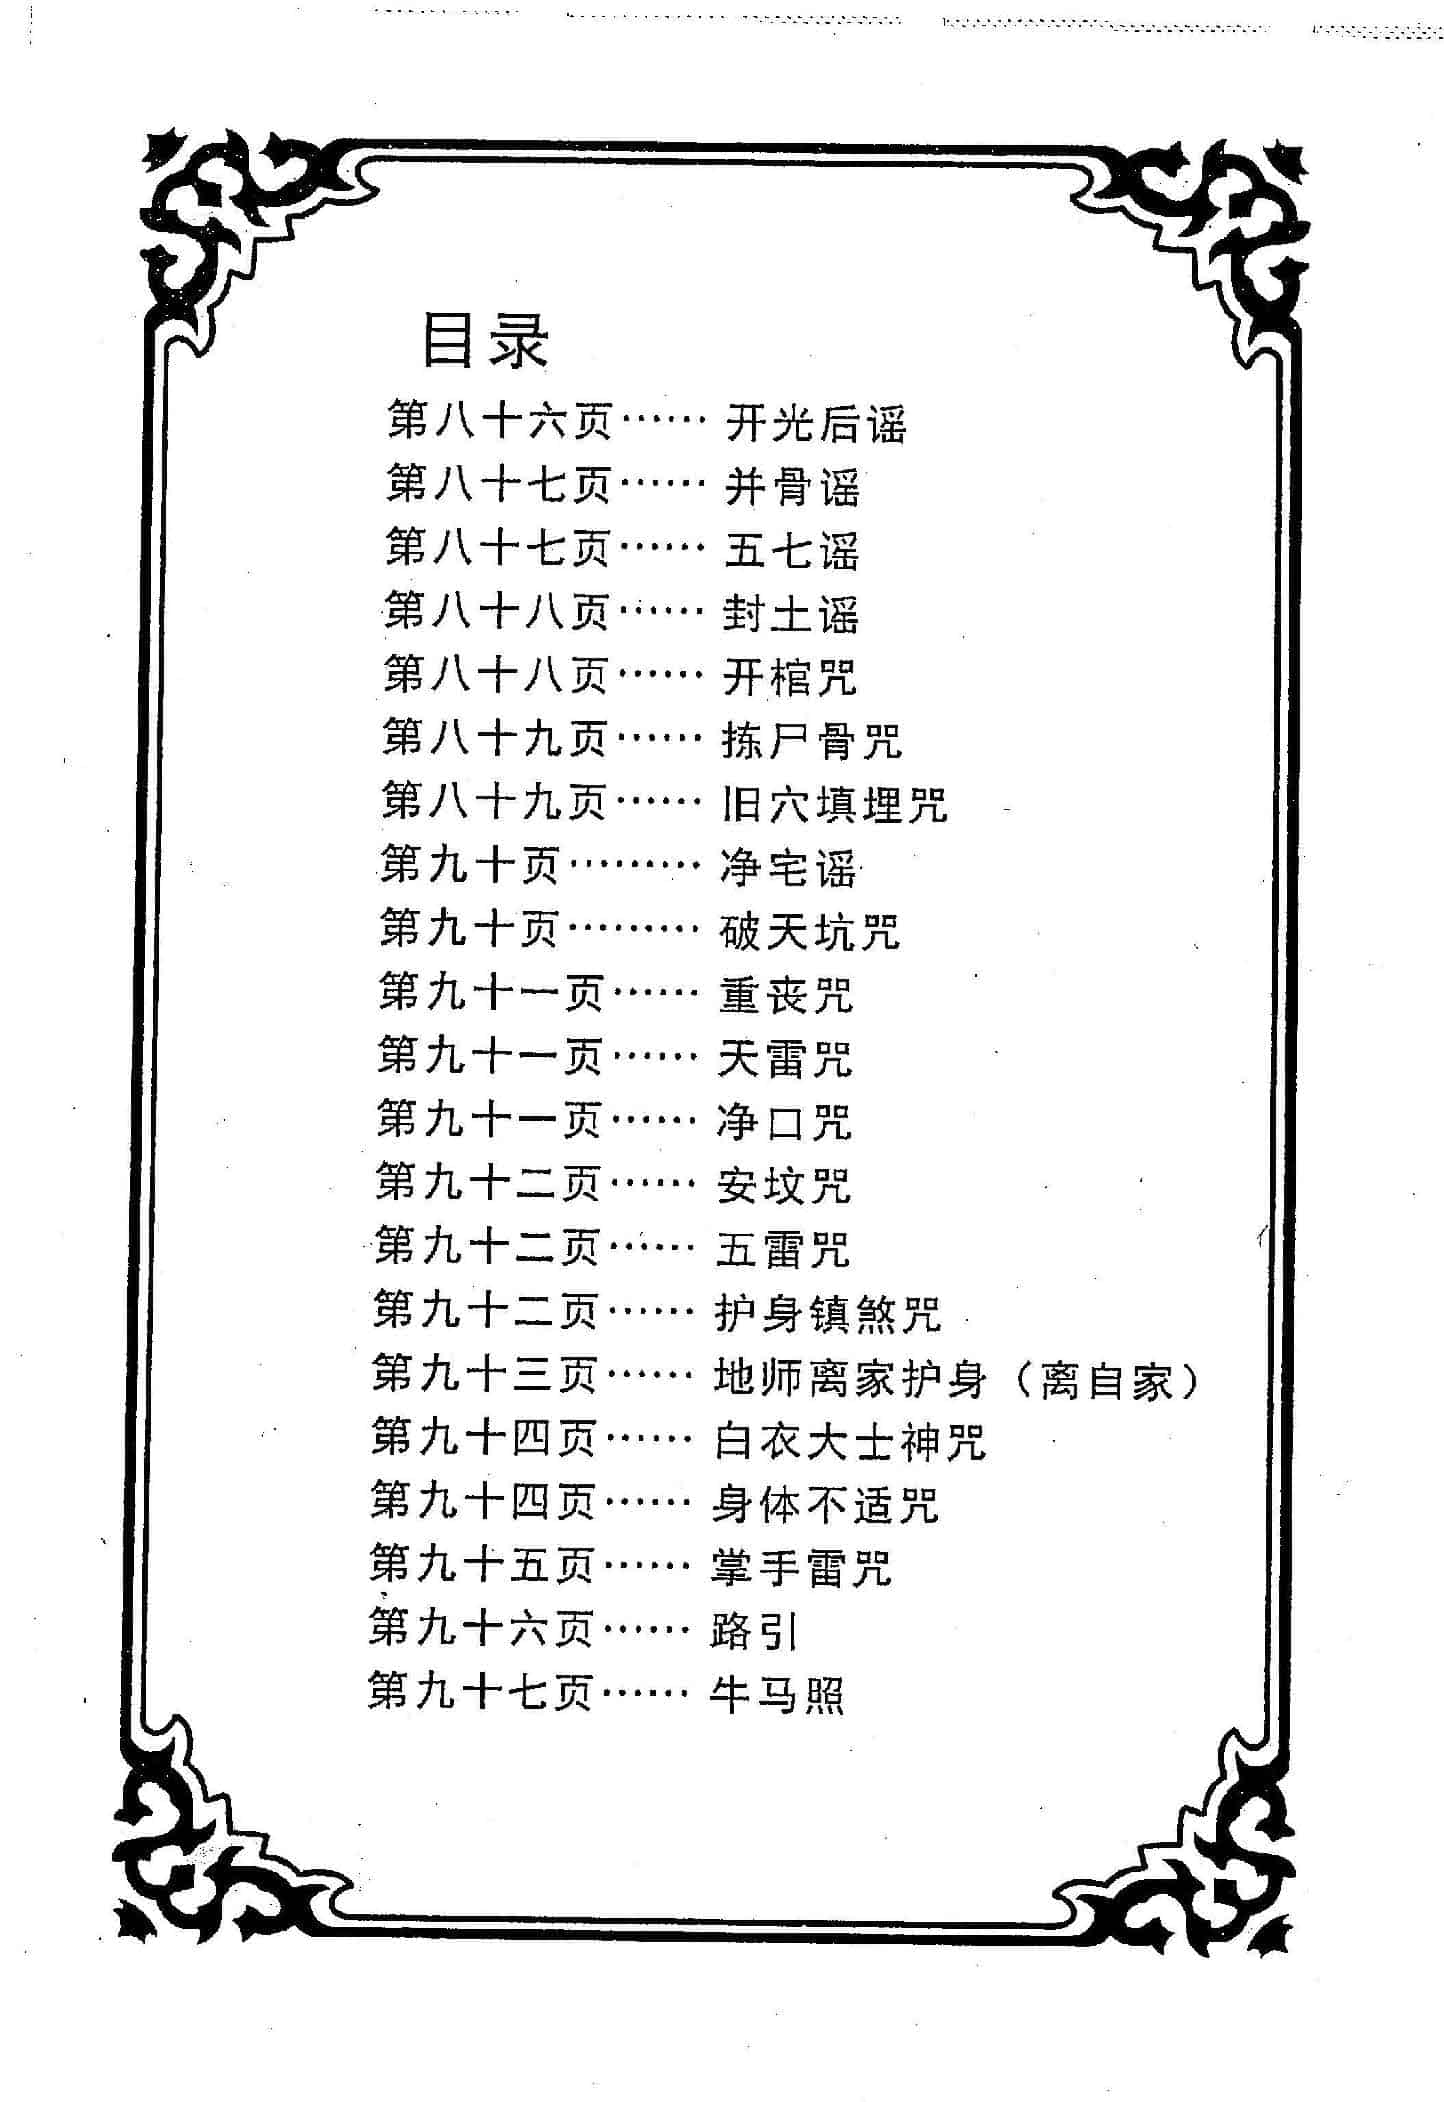 目录
第八十六页……开光后谣
第八十七页……并骨谣
第八十七页……五七谣
第八十八页……封土谣
第八十八页……开棺咒
第八十九页……拣尸骨咒
第八十九页……旧穴填埋咒
第九十页………净宅谣
第九十页………破天坑咒
第九十一页……重丧咒
第九十一页……天雷咒
第九十一页……净口咒
第九十二页……安坟咒
第九十二页……五雷咒
第九十二页……护身镇煞咒
第九十三页……地师离家护身（离自家）
第九十四页……白衣大士神咒
第九十四页……身体不适咒
第九十五页……掌手雷咒
第九十六页……路引
第九十七页……牛马照